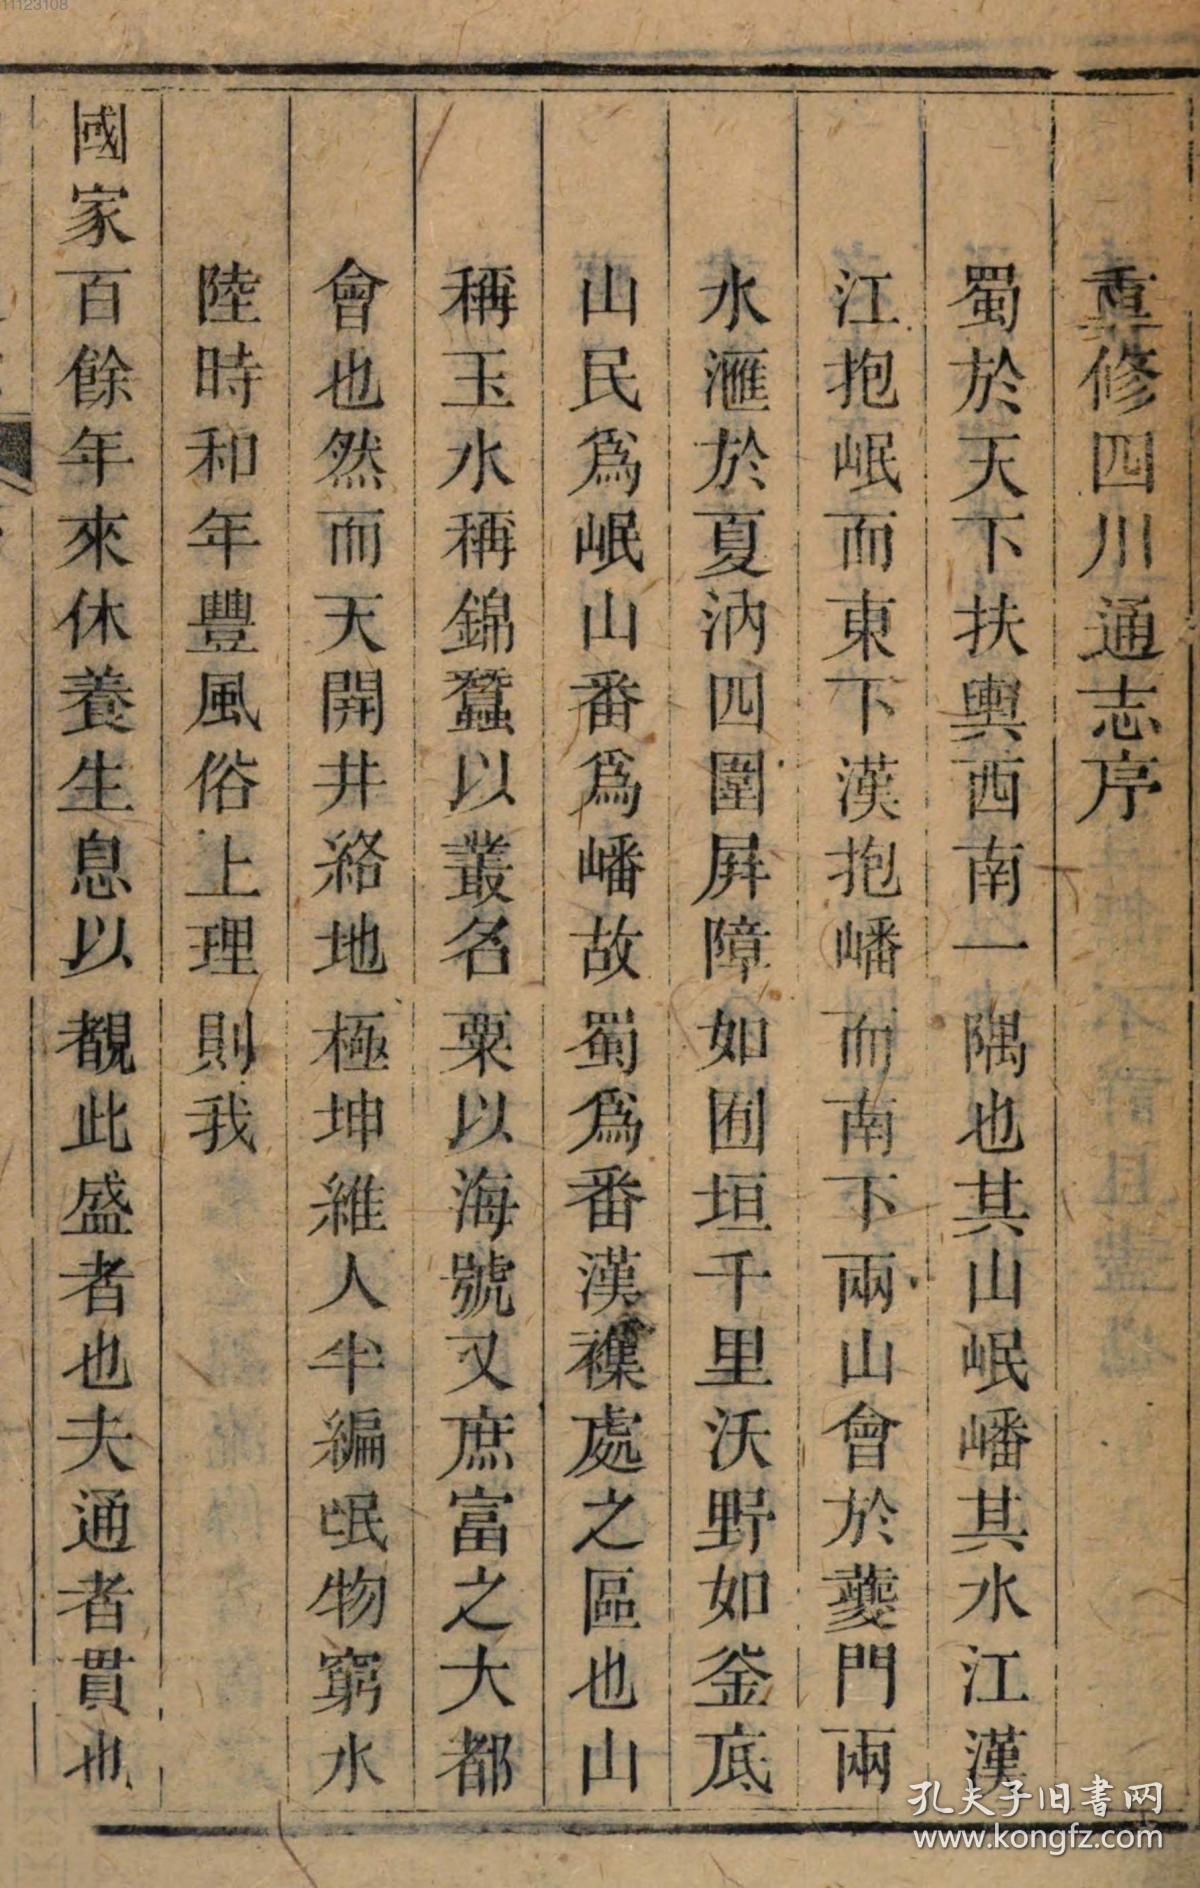 重修四川通志序
蜀於天下扶輿西南一隅也其山岷嶓其水江漢
江抱岷而東下漢抱嶓而南下兩山會於夔門兩
水滙於夏汭四圍屛障如囿垣千里沃野如釜底
山民爲岷山番爲嶓故蜀爲番漢襍處之區也山
稱玉水稱錦蠶以叢名粟以海號又庶富之大都
會也然而天開井絡地極坤維人半編氓物窮水
陸時和年豐風俗上理則我
國家百餘年來休養生息以覩此盛者也夫通者貫也
11123108
孔夫子旧书网
www.kongfz.com